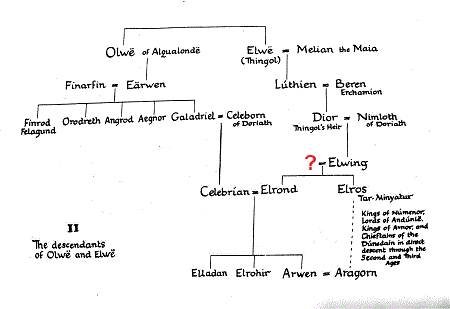 Olwë of Alqualondë
Elwë = Melian the Maia
(Thingol)
Finarfin = Eärwen
Lúthien = Beren
Erchamion
Finrod
Felagund
Orodreth Angrod Aegnor Galadriel = Celeborn
of Doriath
Dior = Nimloth
Thingol's Heir
of Doriath
? = Elwing
Celebrían = Elrond
Elros
Tar-Minyatur
Kings of Númenor,
Lords of Andúnië,
Kings of Arnor, and
Chieftains of the
Dúnedain in direct
descent through the
Second and Third
Ages
II
The descendants
of Olwë and Elwë
Elladan Elrohir Arwen = Aragorn